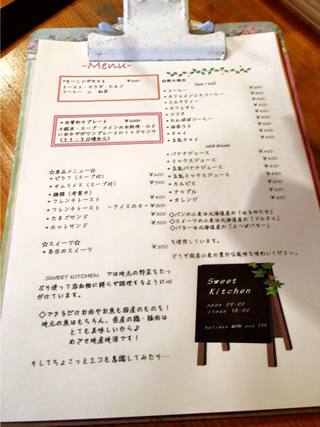 -Menu-
*モーニングセット ¥500
トースト・サラダ・たまご
コーヒー or 紅茶
*日替わりプレート ¥1000
十穀米・スープ・メインのお料理・小さ
いおかずがワンプレートに!+ドリンク
(11:30頃から)
☆単品メニュー
・ピラフ(スープ付) ¥600
・オムライス(スープ付) ¥700
・フレンチトースト ¥400
・フレンチトースト ーアイスのせー ¥500
・たまごサンド ¥500
・ホットサンド ¥500
☆スイーツ☆
・本日のスイーツ ¥350
☆飲み物☆
(hot/ice)
・コーヒー
・カフェインレスコーヒー
・ミルクティー
・カフェオレ
・ココア
・たんぽぽコーヒー
・抹茶ラテ
・チャイ
・豆乳チャイ
cold drink
・バナナジュース
・ミックスジュース
・豆乳バナナジュース
・豆乳ミックスジュース
・カルピス
・アップル
・オレンジ
◇パンの小麦は北海道産の「はるゆたか」
◇スイーツの小麦は北海道産の「ドルチェ」
◇バターは北海道産の「よつ葉バター」
を使用しています。
どうぞ国産小麦の豊かな風味を味わいください。
SWEET KITCHEN では地元の野菜をた
っぷり使って添加物に頼らず調理するように心
がけています。
◇できるだけお肉やお魚も国産のものを!
地元の魚はもちろん、県産の鶏・豚肉は
とても美味しいから♪
めざせ地産地消です!
そしてちょこっとエコも意識してみたり…
Sweet
Kitchen
open 09:00
close 18:00
holiday MON and TUE